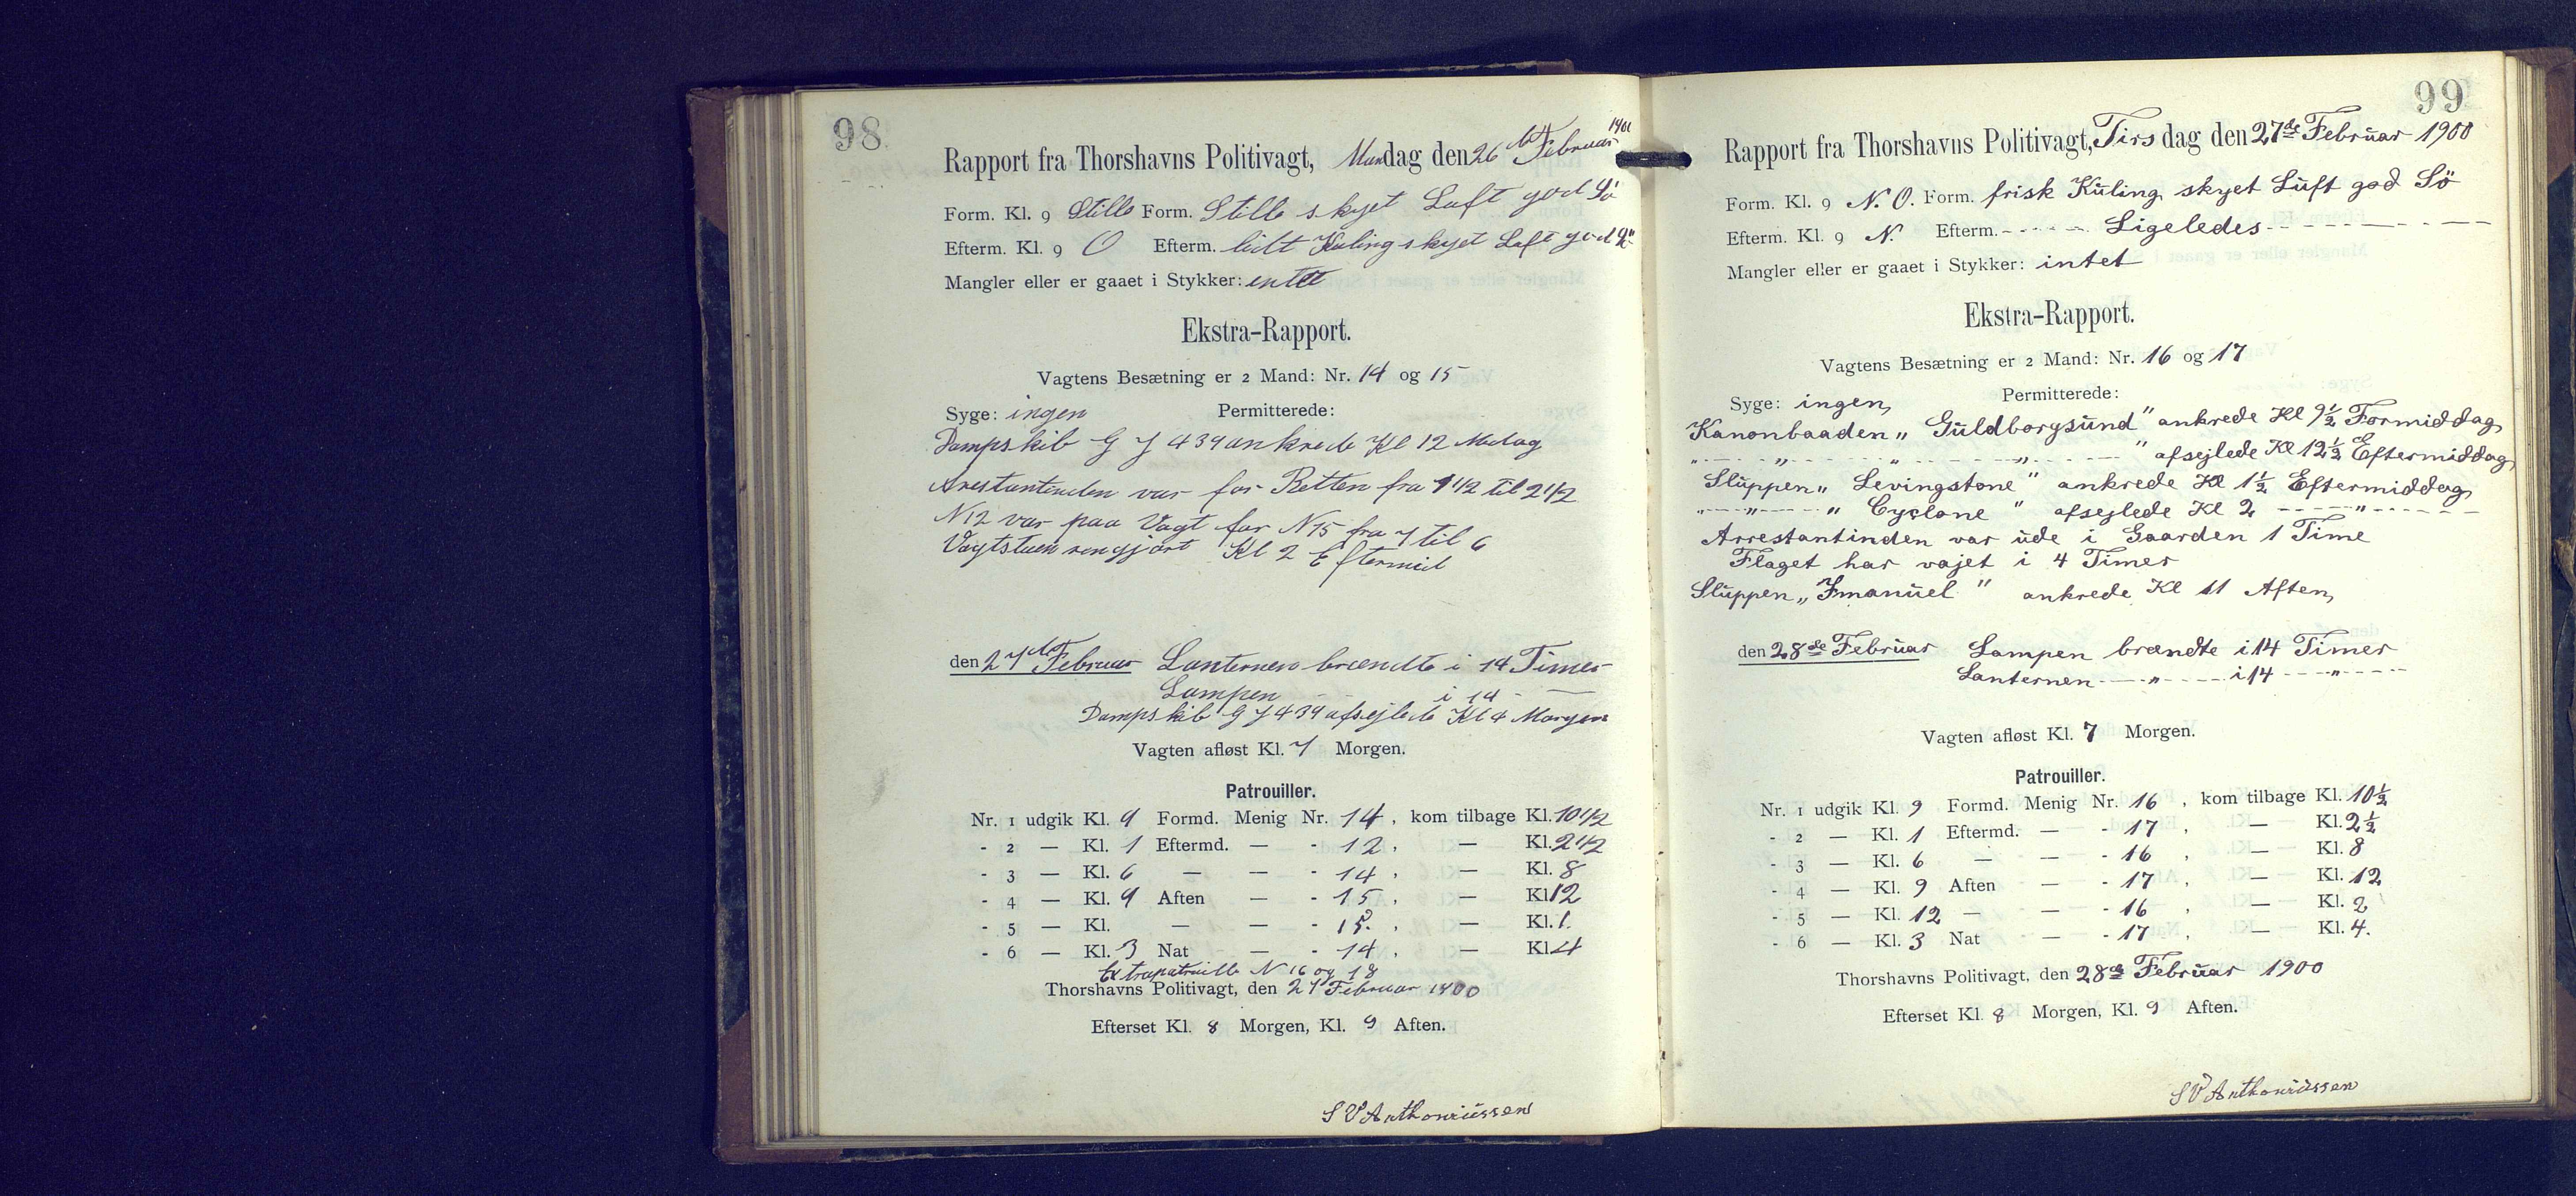 98
Rapport fra Thorshavns Politivagt, Mandag den 26de Februar 1900
Form. Kl. 9 Stille Form. Stille skyet Luft god Sö
Efterm. Kl. 9 O Efterm. lidt Kuling skyet Luft god Sö
Mangler eller er gaaet i Stykker: entet
Ekstra-Rapport.
Vagtens Besætning er 2 Mand: Nr. 14 og 15
Syge: ingen Permitterede:
Dampskib G Y 439 ankrede Kl 12 Midag
Arestantinden var for Retten fra 1 1/2 til 2 1/2
N 12 var paa Vagt for N 15 fra 7 til 6
Vagtstuen rengjort Kl 2 Eftermid
den 27de Februar Lanternen brændte i 14 Timer
Lampen - - i 14 - —
Dampskib G Y 439 afsejlede Kl 4 Morgen
Vagten afløst Kl. 7 Morgen.
Patrouiller.
Nr. 1 udgik Kl. 9 Formd. Menig Nr. 14, kom tilbage Kl. 10 1/2
- 2 — Kl. 1 Eftermd. — - 12, — Kl. 2 1/2
- 3 — Kl. 6 — — - 14, — Kl. 8
- 4 — Kl. 9 Aften — - 15, — Kl. 12
- 5 — Kl. — — - 15, — Kl. 1.
- 6 — Kl. 3 Nat — - 14, — Kl. 4
Extrapatruille N 16 og 18
Thorshavns Politivagt, den 27 Februar 1900
Efterset Kl. 8 Morgen, Kl. 9 Aften.
S V Anthoniussen
99
Rapport fra Thorshavns Politivagt, Tirsdag den 27de Februar 1900
Form. Kl. 9 N.O. Form. frisk Kuling skyet Luft god Sö
Efterm. Kl. 9 N. Efterm. - - - - Ligeledes - - - -
Mangler eller er gaaet i Stykker: intet
Ekstra-Rapport.
Vagtens Besætning er 2 Mand: Nr. 16 og 17
Syge: ingen, Permitterede:
Kanonbaaden „Guldborgsund" ankrede Kl 9 1/2 Formiddag,
" - - " - - " - - " - - " afsejlede Kl 12 1/2 Eftermiddag,
Sluppen „Levingstone" ankrede Kl 1 1/2 Eftermiddag,
" - - " - - „Cyclone" afsejlede Kl 2 - - - " - - -
Arrestantinden var ude i Gaarden 1 Time
Flaget har vajet i 4 Timer
Sluppen „Imanuel" ankrede Kl 11 Aften,
den 28de Februar Lampen brændte i 14 Timer
Lanternen - - " - - i 14 - - " - -
Vagten afløst Kl. 7 Morgen.
Patrouiller.
Nr. 1 udgik Kl. 9 Formd. Menig Nr. 16, kom tilbage Kl. 10 1/2
- 2 — Kl. 1 Eftermd. — - 17, — Kl. 2 1/2
- 3 — Kl. 6 — — - 16, — Kl. 8
- 4 — Kl. 9 Aften — - 17, — Kl. 12
- 5 — Kl. 12 — — - 16, — Kl. 2
- 6 — Kl. 3 Nat — - 17, — Kl. 4.
Thorshavns Politivagt, den 28de Februar 1900
Efterset Kl. 8 Morgen, Kl. 9 Aften.
S V Anthoniussen